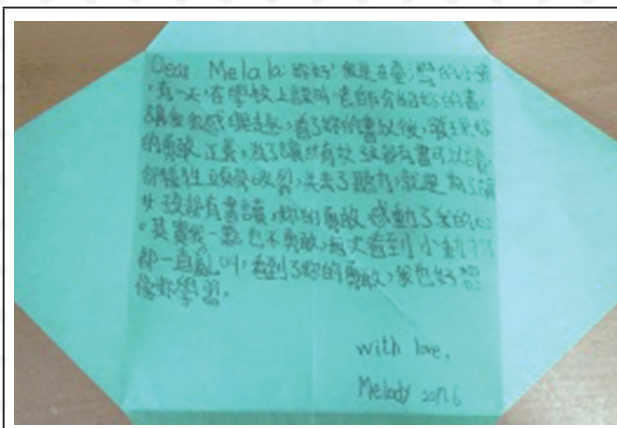 Dear Melala: 妳好!我是在臺灣的小孩
,有一天,在學校上課時,老師介紹妳的書,
讓我很感興趣,看了妳的書以後,發現妳
的勇敢、正義,為了讓所有女孩都有書可以讀,
卻犧牲頭骨,失去了聽力,就是為了讓
女孩都有書讀,妳的勇敢感動了我的心
。其實我一點也不勇敢,每次看到小動物
都一直亂叫,看到了妳的勇敢,我也好想
像妳學習。
with love,
Melody 2017.6